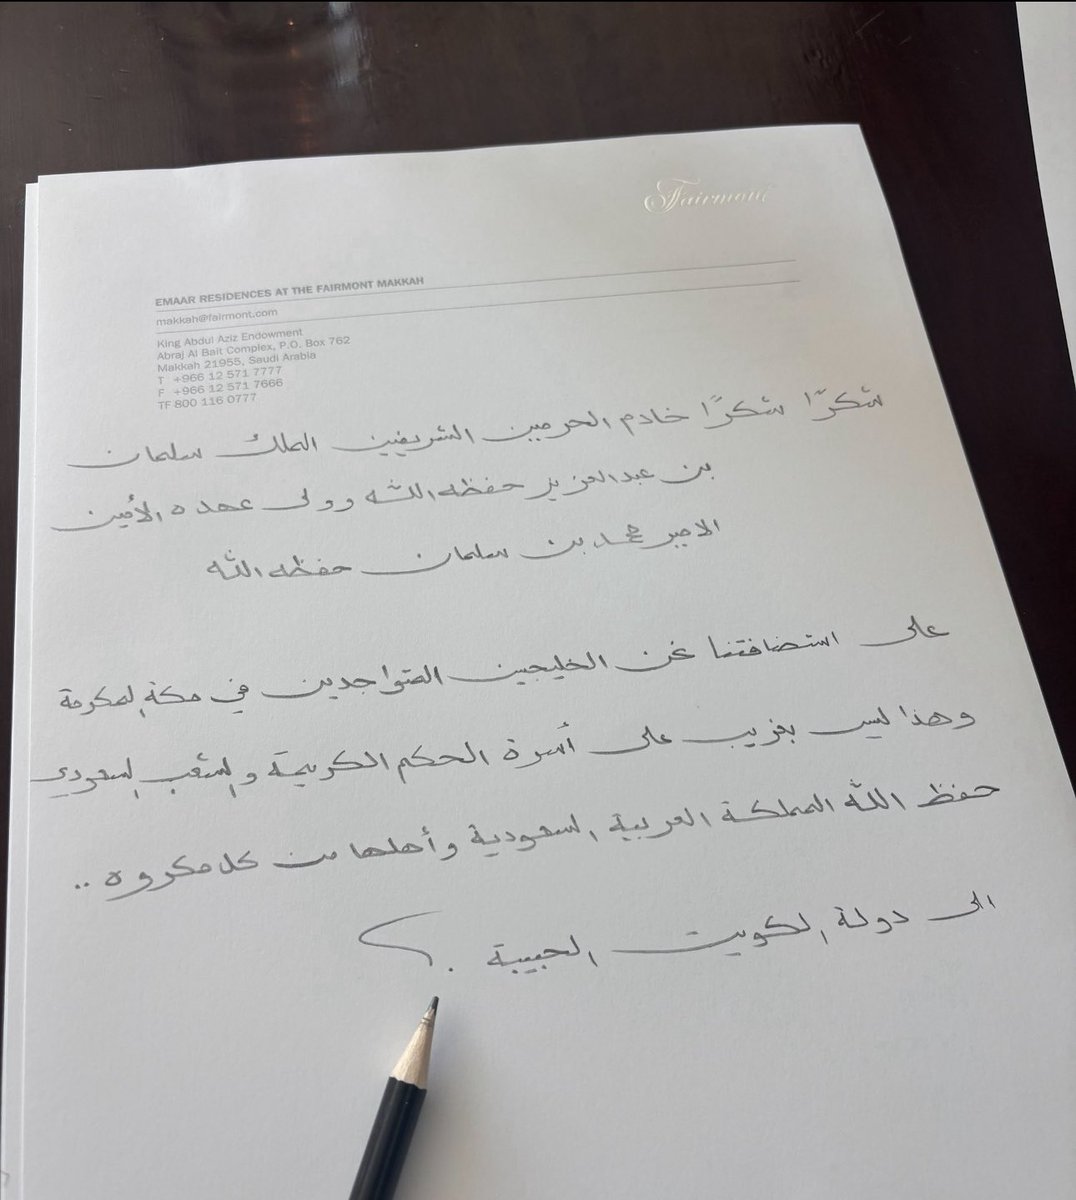 Fairmont
EMAAR RESIDENCES AT THE FAIRMONT MAKKAH
makkah@fairmont.com
King Abdul Aziz Endowment
Abraj Al Bait Complex, P.O. Box 762
Makkah 21955, Saudi Arabia
T +966 12 571 7777
F +966 12 571 7666
TF 800 116 0777
شكرًا شكرًا خادم الحرمين الشريفين الملك سلمان
بن عبدالعزيز حفظه الله وولى عهده الأمين
الامير محمد بن سلمان حفظه الله
على استضافتنا نحن الخليجين المتواجدين في مكة المكرمة
وهذا ليس بغريب على أسرة الحكم الكريمة والشعب السعودي
حفظ الله المملكة العربية السعودية وأهلها من كل مكروه ..
الى دولة الكويت الحبيبة .